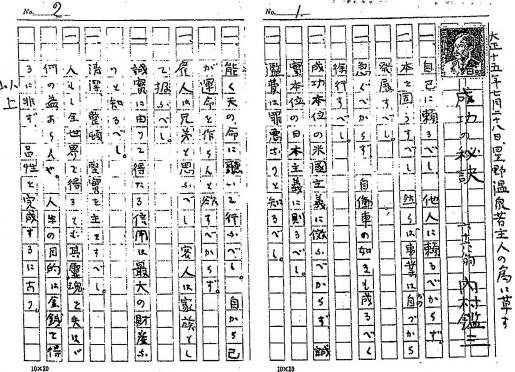 No. 1
大正十五年七月二十八日、星野温泉若主人の為に草す
成功の秘訣
六十六翁 内村鑑三
一 自己に頼るべし、他人に頼るべからず。
一 本を固うすべし、然らば事業は自づから
発展すべし。
一 急ぐべからず、自働車の如きも成るべく
徐行すべし。
一 成功本位の米国主義に倣ふべからず、誠
実本位の日本主義に則るべし。
一 濫費は罪悪なりと知るべし。
No. 2
一 能く天の命に聴いて行ふべし。自から己
が運命を作らんと欲すべからず。
一 雇人は兄弟と思ふべし、客人は家族とし
て扱ふべし。
一 誠実に由りて得たる信用は最大の財産な
りと知るべし。
一 清潔、整頓、堅実を主とすべし。
一 人もし全世界を得るとも其霊魂を失はゞ
何の益あらんや。人生の目的は金銭を得
るに非ず、品性を完成するにあり。
以上
10×20
10×20